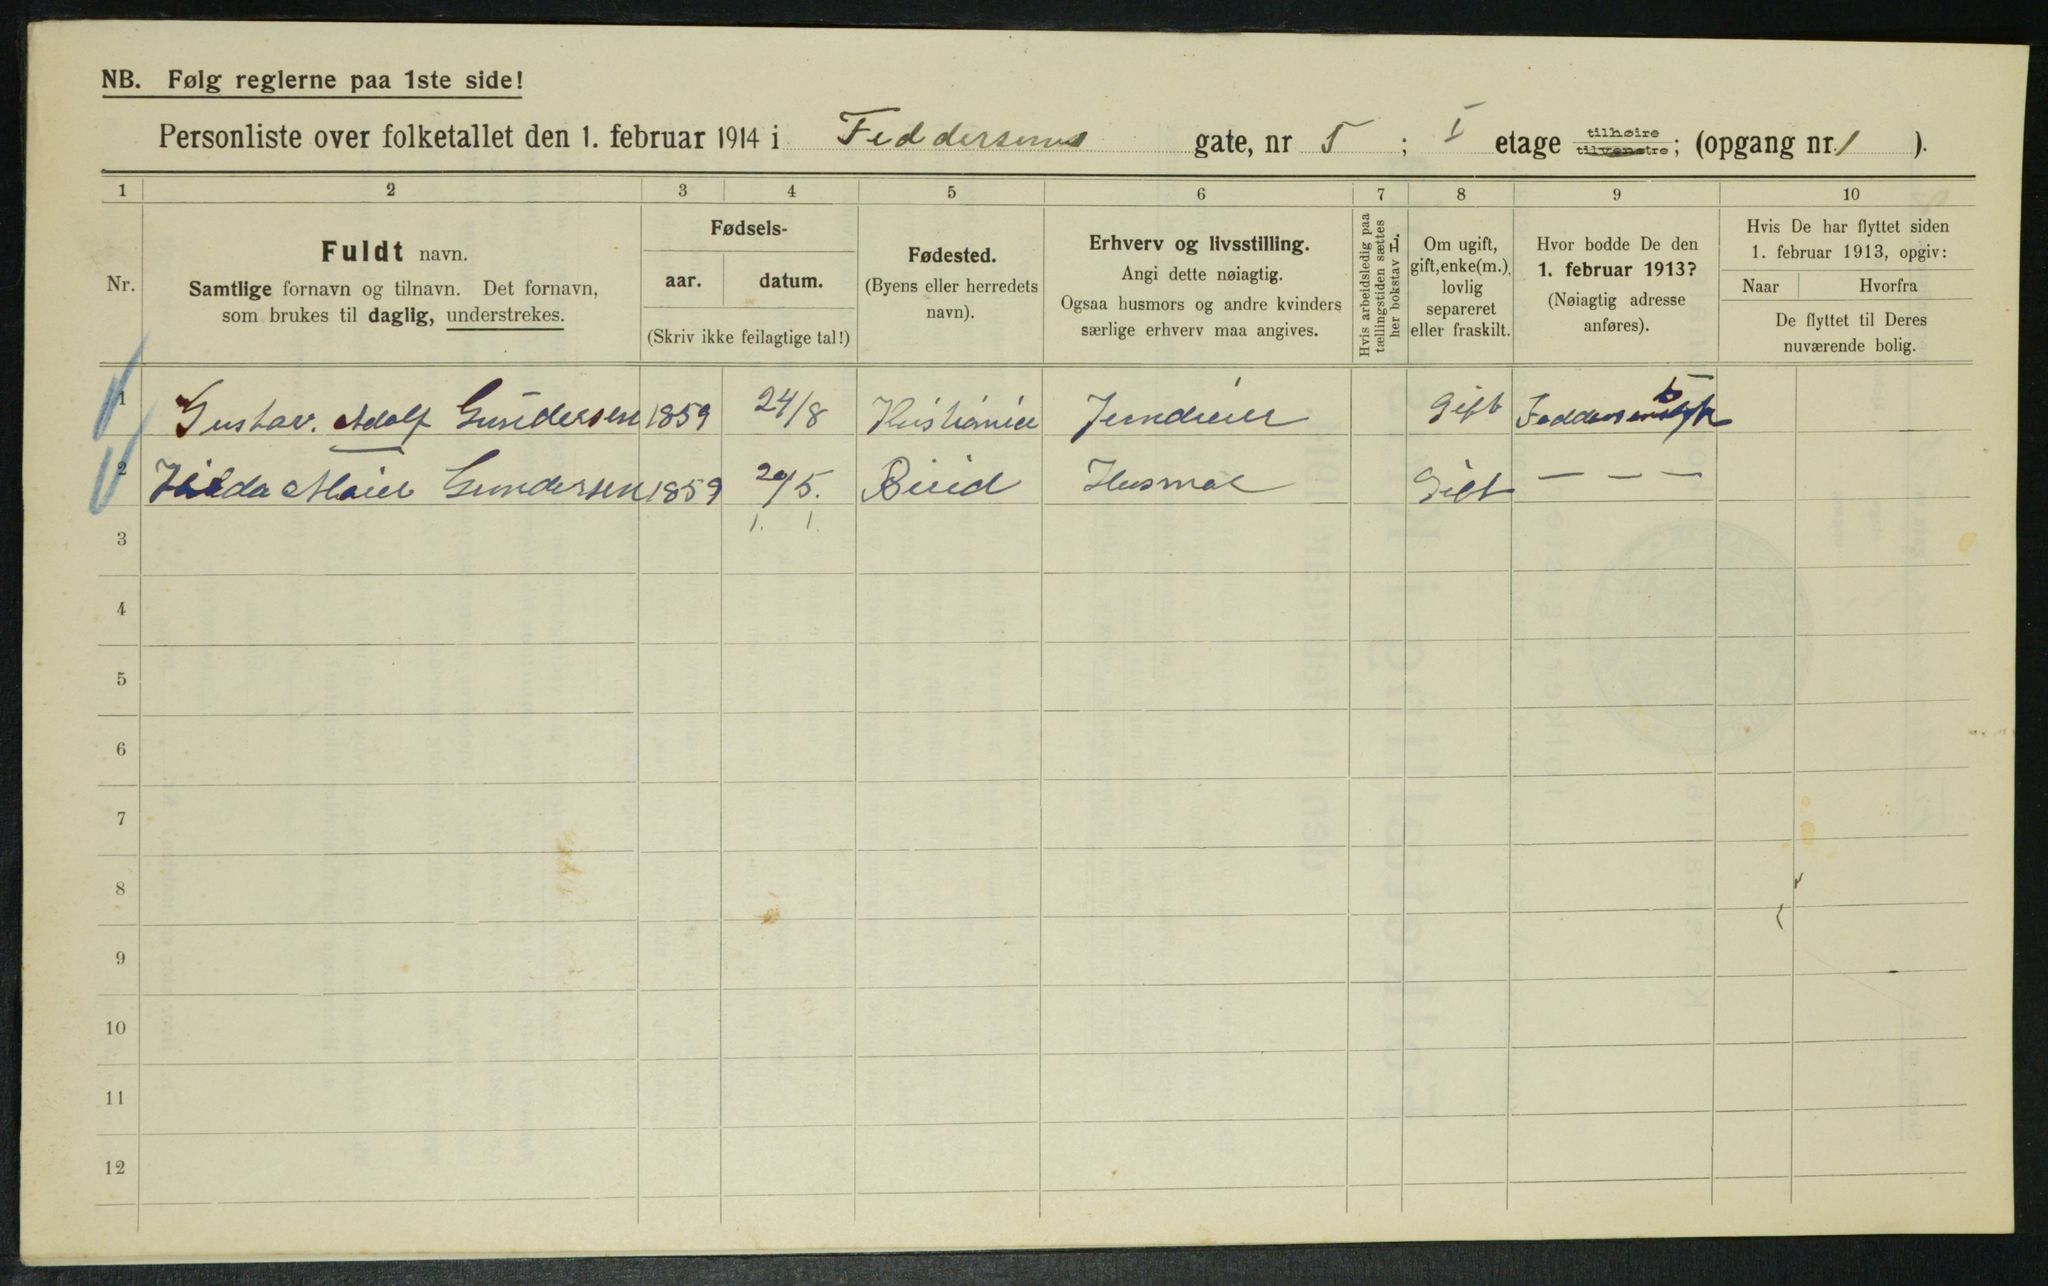 NB. Følg reglerne paa 1ste side!
Personliste over folketallet den 1. februar 1914 i Feddersens gate, nr 5 ; I etage tilhøire tilvenstre; (opgang nr. 1 ).
1 2 3 4 5 6 7 8 9 10
Nr.
Fuldt navn.
Samtlige fornavn og tilnavn. Det fornavn,
som brukes til daglig, understrekes.
Fødsels-
aar. datum.
(Skriv ikke feilagtige tal!)
Fødested.
(Byens eller herredets
navn).
Erhverv og livsstilling.
Angi dette nøiagtig.
Ogsaa husmors og andre kvinders
særlige erhverv maa angives.
Hvis arbeidsledig paa
tællingstiden sættes
her bokstav L.
Om ugift,
gift, enke(m.),
lovlig
separeret
eller fraskilt.
Hvor bodde De den
1. februar 1913?
(Nøiagtig adresse
anføres).
Hvis De har flyttet siden
1. februar 1913, opgiv:
Naar Hvorfra
De flyttet til Deres
nuværende bolig.
1 Gustav. Adolf Gundersen 1859 24/8 Kristiania Jerndreier Gift 5
2 Hilda Marie Gundersen 1859 20/5. Birid Husmor Gift — — —
3
4
5
6
7
8
9
10
11
12